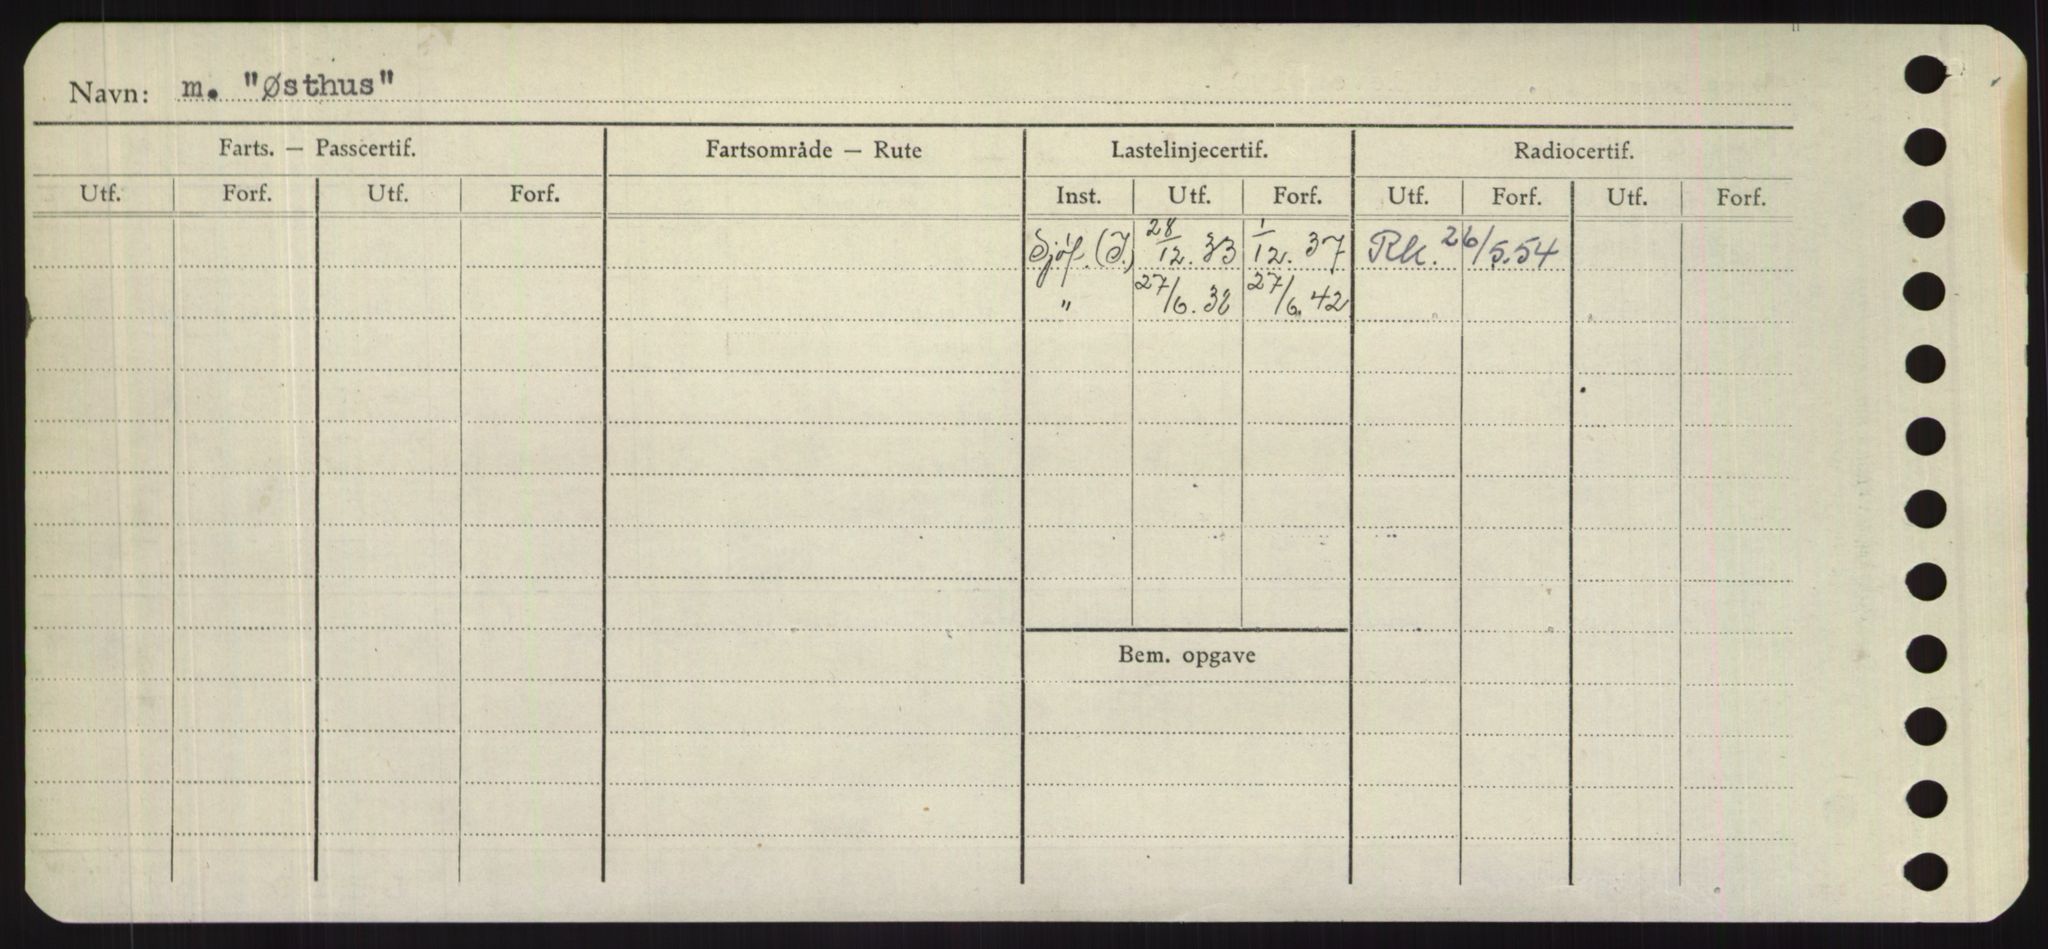 Navn: m. "Østhus"
Farts. — Passcertif. Fartsområde — Rute Lastelinjecertif. Radiocertif.
Utf. Forf. Utf. Forf. Inst. Utf. Forf. Utf. Forf. Utf. Forf.
Sjöf. (I.) 28/12. 33 1/12. 37 Rk. 26/5.54
" 27/6. 38 27/6. 42
Bem. opgave